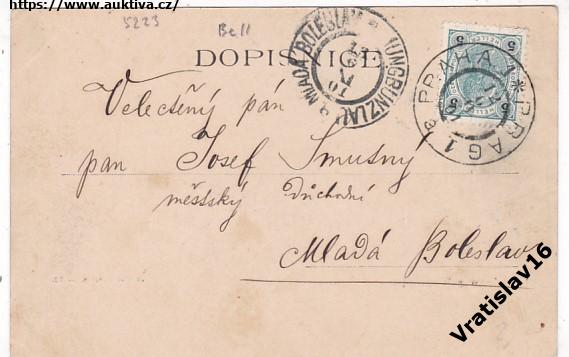 https://www.auktiva.cz/
5223
Bell
DOPISNICE
MLADÁ BOLESLAV
JUNGBUNZLAU
5 5
PRAHA 1 * PRAG 1
Velectěný pán
pan Josef Smutný
městský důchodní
Mladá Boleslav
Vratislav16